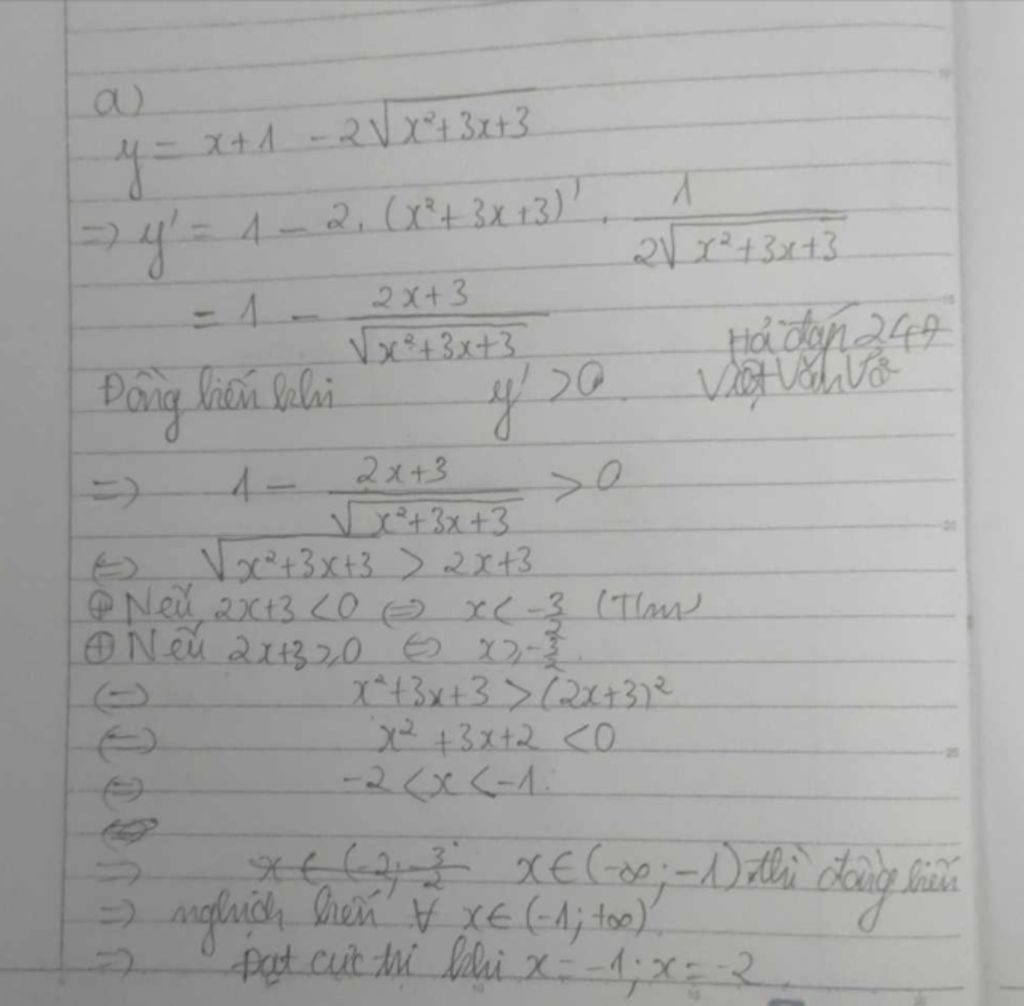 a)
y = x+1 - 2√(x²+3x+3)
=> y' = 1 - 2. (x²+3x+3)' . 1/(2√(x²+3x+3))
= 1 - (2x+3)/√(x²+3x+3)
Đồng biến khi y' > 0
=> 1 - (2x+3)/√(x²+3x+3) > 0
⇔ √(x²+3x+3) > 2x+3
⊕ Nếu 2x+3 < 0 ⇔ x < -3/2 (Tlm)
⊕ Nếu 2x+3 ≥ 0 ⇔ x ≥ -3/2
⇔ x²+3x+3 > (2x+3)²
⇔ x² +3x+2 < 0
⇔ -2 < x < -1.
=> x ∈ (-2; -3/2 x ∈ (-∞; -1) thì đồng biến
=> nghịch biến ∀ x ∈ (-1; +∞)
=> Đạt cực trị khi x = -1; x = -2